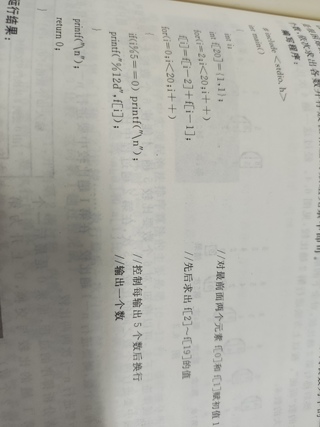 依次求出各数并存放
编写程序：
#include <stdio.h>
int main()
{
int i;
int f[20]={1,1}; //对最前面两个元素f[0]和f[1]赋初值1
for(i=2;i<20;i++)
f[i]=f[i-2]+f[i-1]; //先后求出f[2]～f[19]的值
for(i=0;i<20;i++)
{
if(i%5==0) printf("\n"); //控制每输出5个数后换行
printf("%12d",f[i]); //输出一个数
}
printf("\n");
return 0;
}
运行结果：